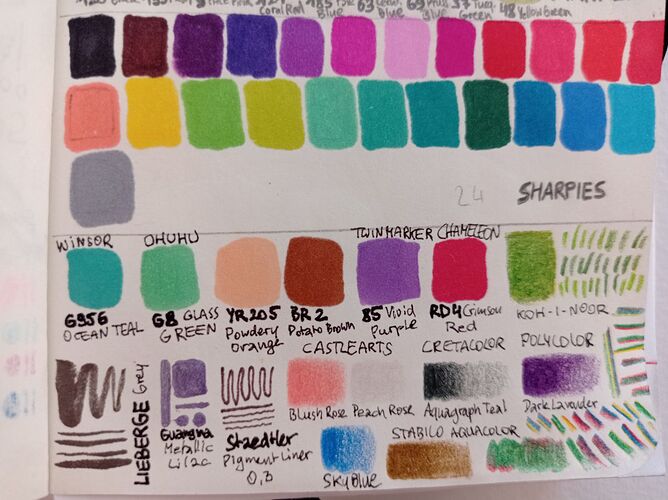 Coral Red
Blue
63
Blue
69
Blue
37
Green
48 Yellow Green
24 SHARPIES
WINSOR OHUHU TWINMARKER CHAMELEON
G956 G8 GLASS YR205 BR2 85 Vivid RD4 Crimson KOH-I-NOOR
OCEAN TEAL GREEN Powdery Potato Brown Purple Red
Orange
CASTLEARTS CRETACOLOR POLYCOLOR
LIEBERGE Grey
Blush Rose Peach Rose Aquagraph Teal Dark Lavander
Guangna Staedtler STABILO AQUACOLOR
Metallic Pigment Liner
Lilac 0,3 SKY BLUE